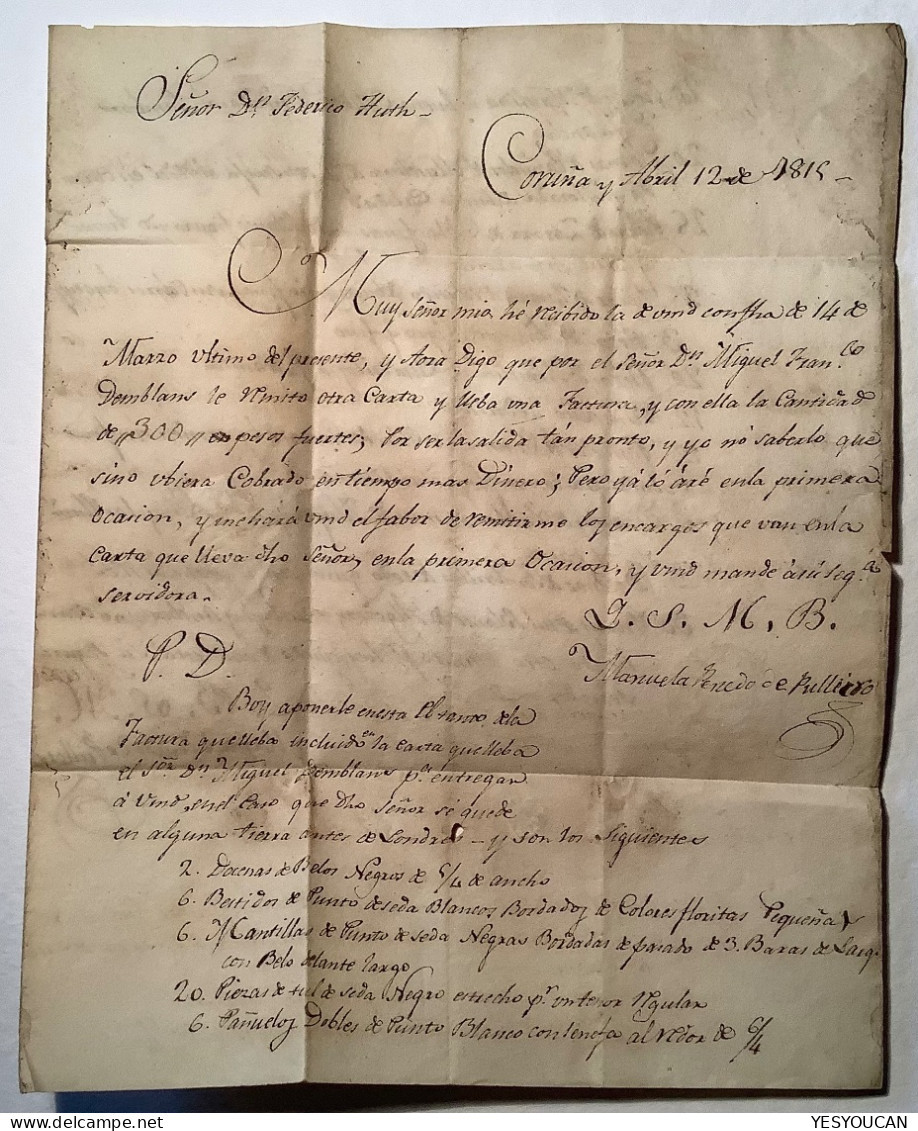 Señor Dn Federico Huth
Coruña y Abril 12 de 1815
Muy señor mio, hé recibido la de vmd con fha de 14 de
Marzo ultimo del presente, y Aora Digo que por el Señor Dn Miguel Franco
Demblans le remito otra Carta y lleba una Factura, y con ella la Cantidad
de ,,300,, pesos fuertes; Por ser la salida tán pronto, y yo nó saberlo que
sino ubiera Cobrado en tiempo mas Dinero; Pero yá ló áré en la primera
ocasion, y me hará vmd el fabor de remitirme los encargos que van en la
Carta que lleva dho Señor, en la primera Ocasion, y vmd mande á sú segra
servidora.
Q. S. M. B.
Manuela Penedo de Pulleiro
P. D.
Boy aponerle en esta El tanto de la
Factura que lleba incluido en la carta que lleba
el sor Dn Miguel Demblans pa entregar
á vmd, en el Caso que Dho señor sé quede
en alguna tierra antes de Londres - y son los Siguientes
2. Docenas de Belos Negros de 6/4 de ancho
6. Bestidos de Punto de seda Blancos Bordados de Colores floritas Pequeñas
6. Mantillas de Punto de seda Negras Bordadas de pasado de 3. Baras de Largo
con Belo delante largo
20. Piezas de tul de seda Negro estrecho pr un tenor Regular
6. Pañuelos Dobles de Punto Blanco con cenefa al redor de 6/4
YESYOUCAN